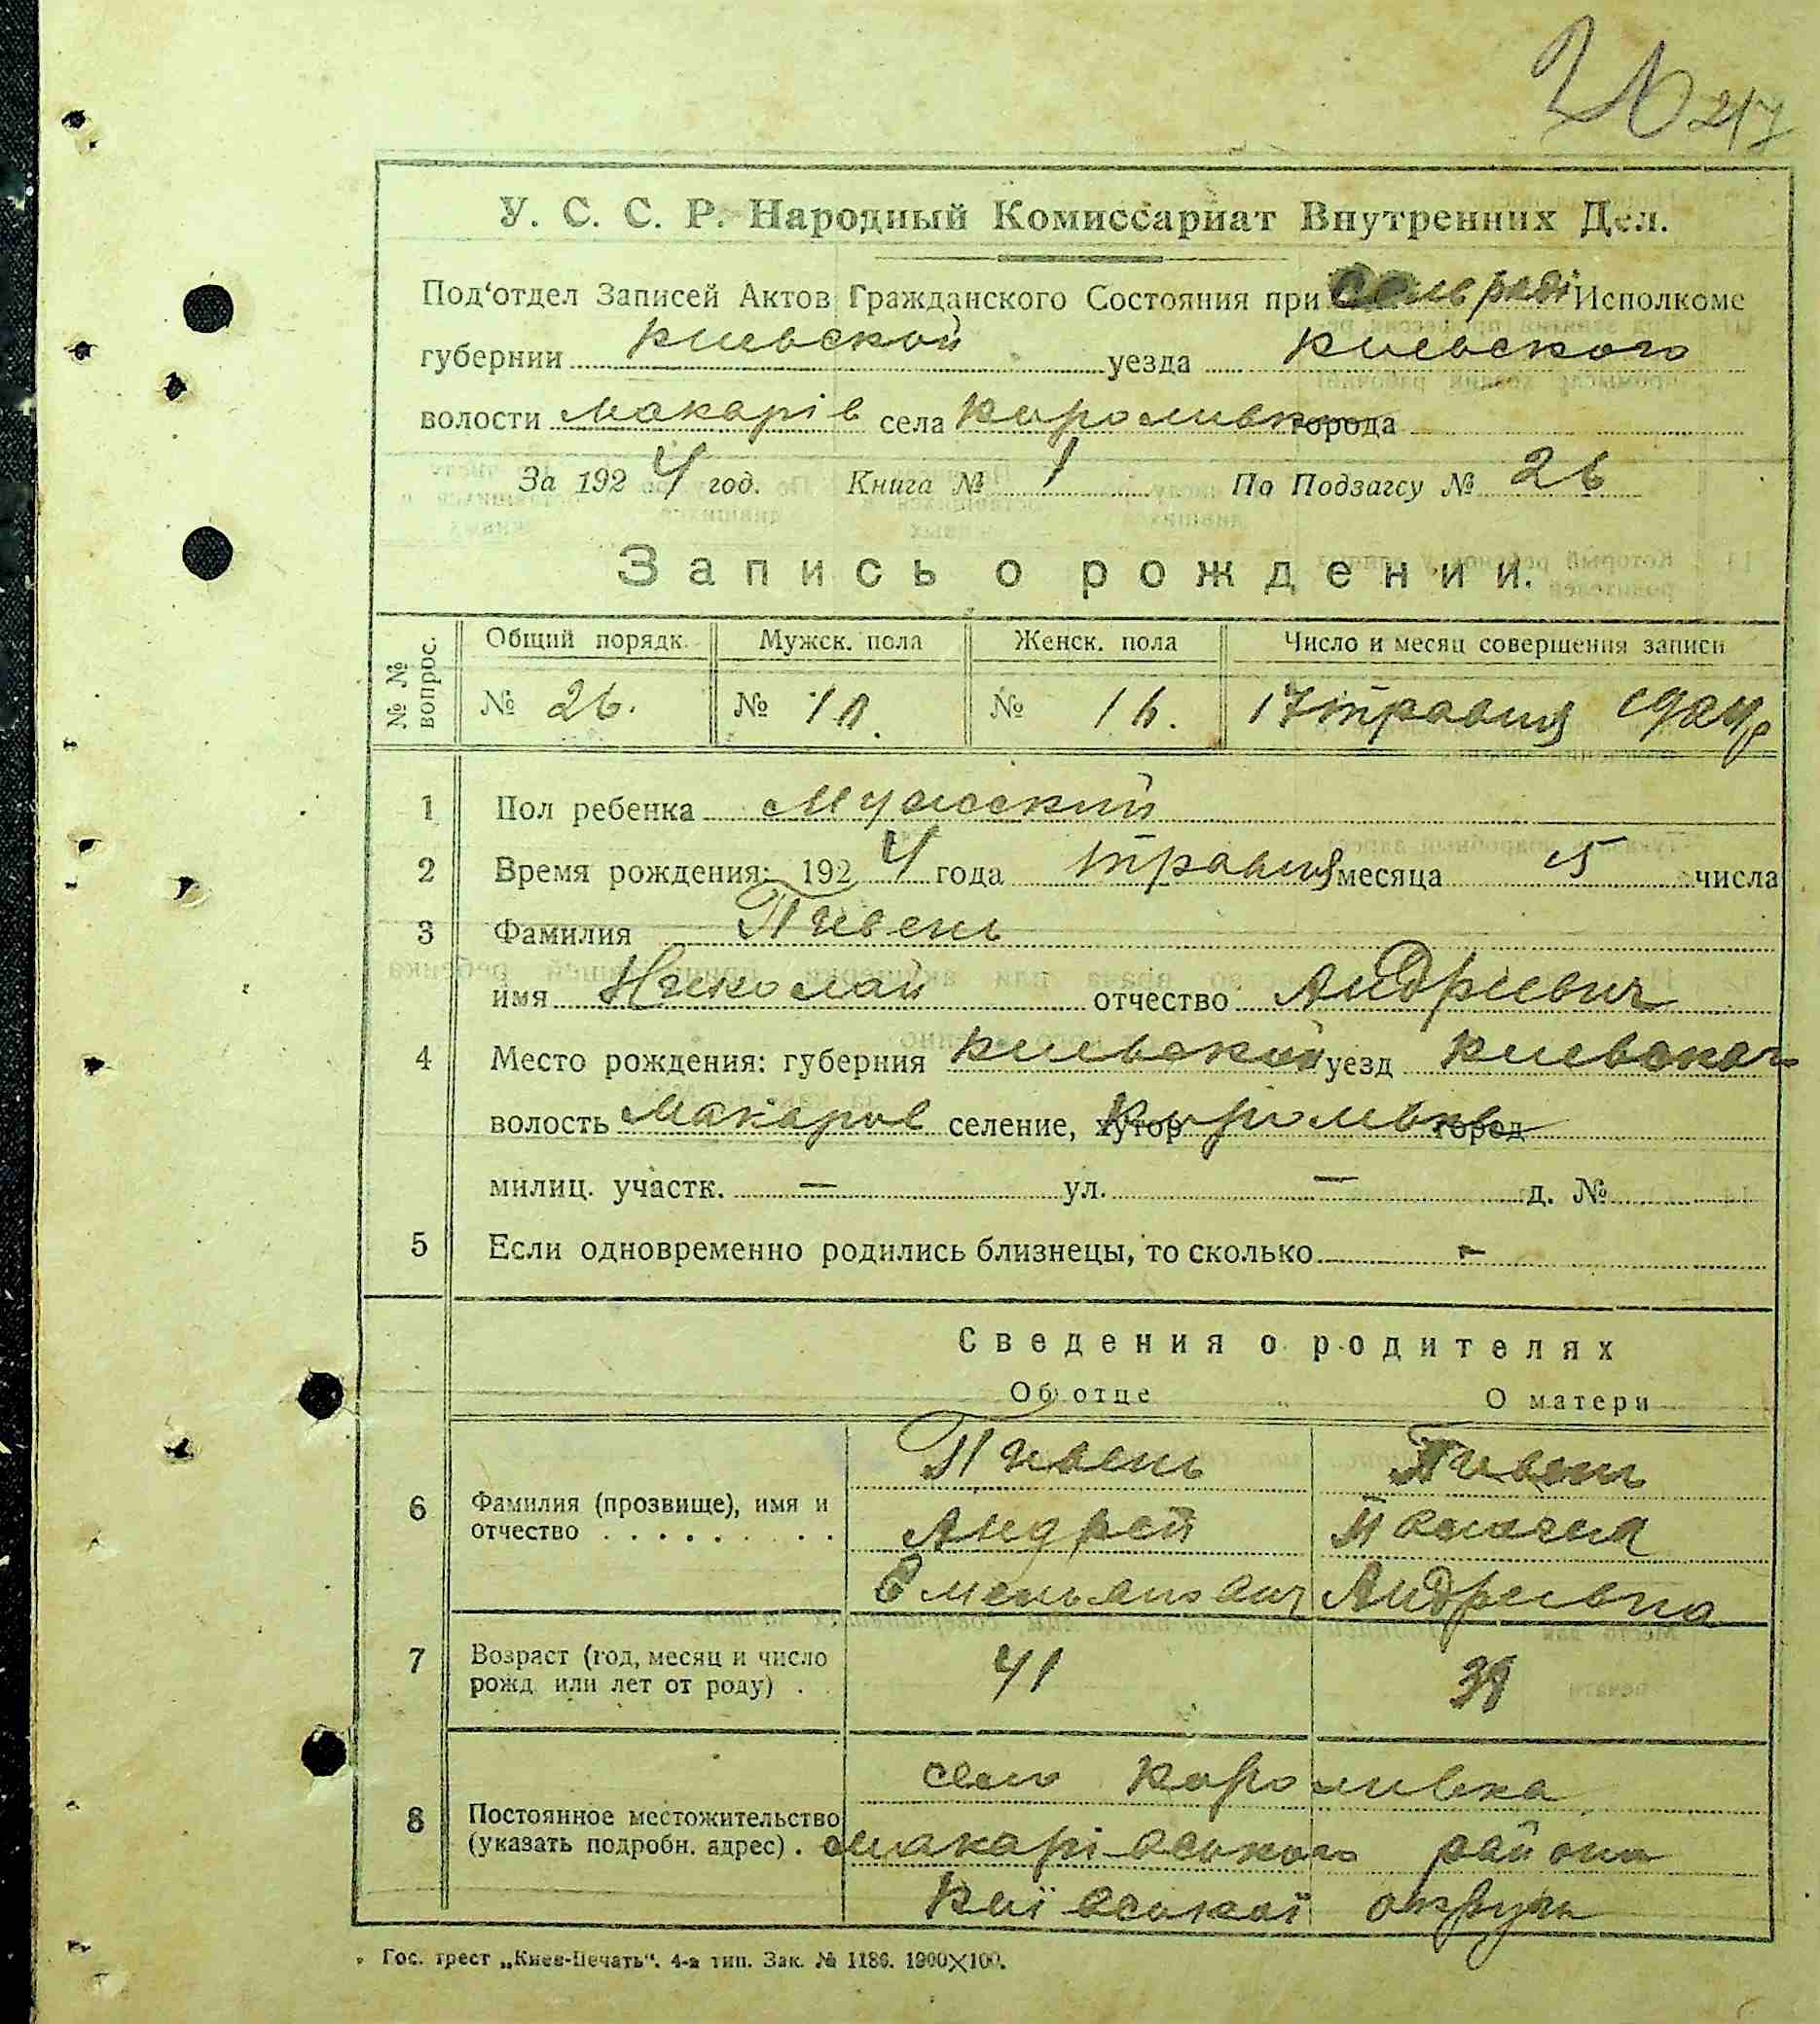 217
У. С. С. Р. Народный Комиссариат Внутренних Дел.
Под'отдел Записей Актов Гражданского Состояния при Сельраді Исполкоме
губернии Киевской уезда Киевского
волости Макарів села Короливк города
За 1924 год. Книга № 1 По Подзагсу № 26
Запись о рождении.
№ № вопрос. Общий порядк. Мужск. пола Женск. пола Число и месяц совершения записи
№ 26. № 10. № 16. 17 травня 1924 р
1 Пол ребенка Мужский
2 Время рождения: 1924 года травня месяца 15 числа
3 Фамилия Пивень
имя Николай отчество Андриевич
4 Место рождения: губерния Киевский уезд Киевского
волость Макаров селение, хутор Королівка город
милиц. участк. — ул. — д. №
5 Если одновременно родились близнецы, то сколько -
Сведения о родителях
Об отце О матери
Пивень Пивень
6 Фамилия (прозвище), имя и
отчество Андрей
Емельянович Андриевна
7 Возраст (год, месяц и число
рожд. или лет от роду) . 41 38
село Короливка
8 Постоянное местожительство
(указать подробн. адрес) . Макарівського района
Київської округи
Гос. трест „Киев-Печать". 4-я тип. Зак. № 1186. 1900×100.